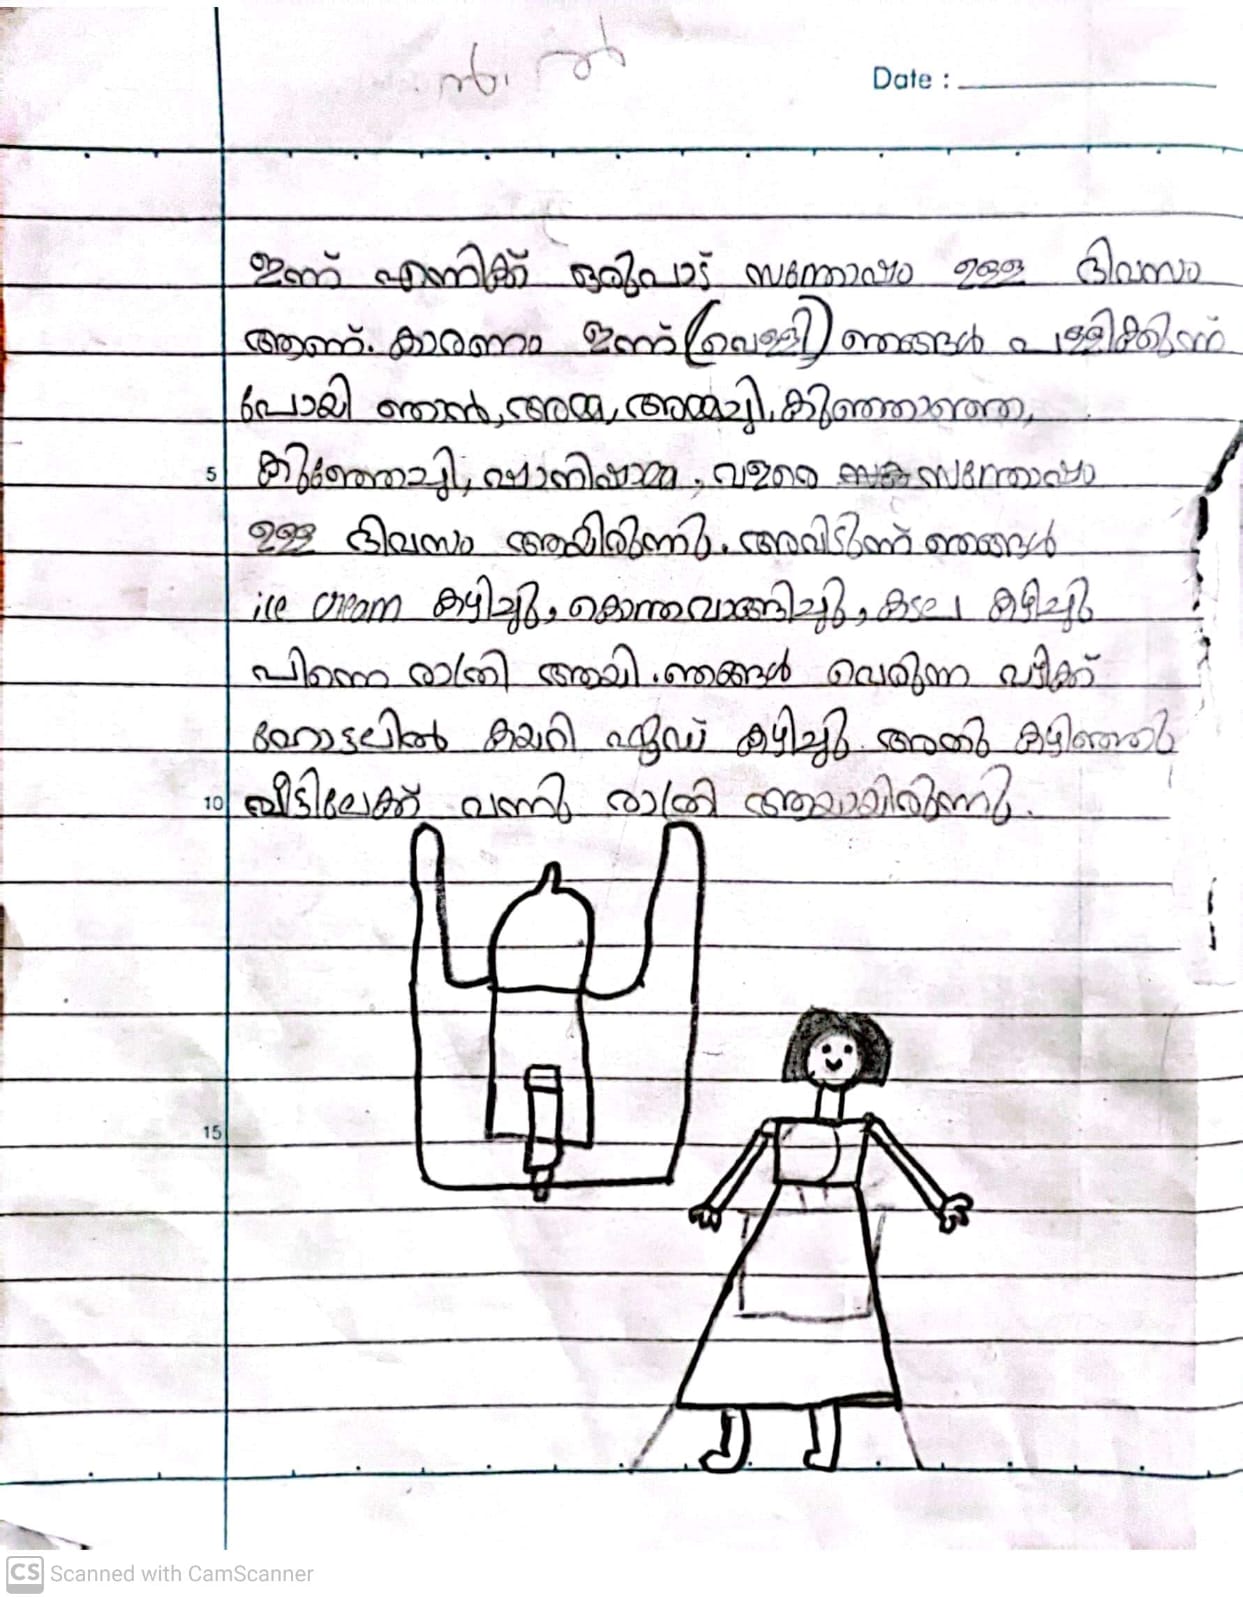 ന്‍. ൽ
Date :
ഇന്ന് എനിക്ക് ഒരുപാട് സന്തോഷം ഉള്ള ദിവസം
ആണ്. കാരണം ഇന്ന് (വെള്ളി) ഞങ്ങൾ പള്ളിക്കുന്ന്
പോയി ഞാൻ, അമ്മ, അമ്മച്ചി, കുഞ്ഞാഞ്ഞ,
5 കുഞ്ഞേച്ചി, ഷാനിഷാമ്മ, വളരെ സന്തോഷം
ഉള്ള ദിവസം ആയിരുന്നു. അവിടുന്ന് ഞങ്ങൾ
ice cream കഴിച്ചു, കൊന്തവാങ്ങിച്ചു, കടല കഴിച്ചു
പിന്നെ രാത്രി ആയി. ഞങ്ങൾ വെരുന്ന വഴിക്ക്
ഹോട്ടലിൽ കയറി ഫുഡ് കഴിച്ചു. അതു കഴിഞ്ഞു
10 വീട്ടിലേക്ക് വന്നു രാത്രി ആയായിരുന്നു.
15
CS Scanned with CamScanner